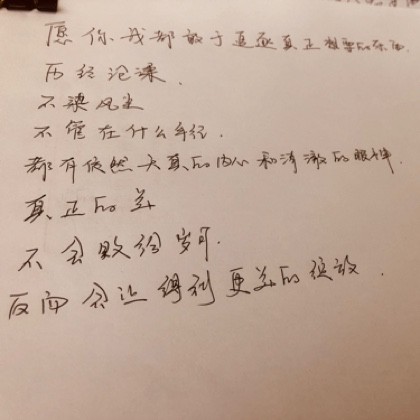 愿你我都敢于追逐真正想要的东西
历经沧漫.
不染风尘
不管在什么年纪.
都有依然天真的内心和清澈的眼神.
真正的美
不会败给岁月.
反而会让得到更美的绽放.